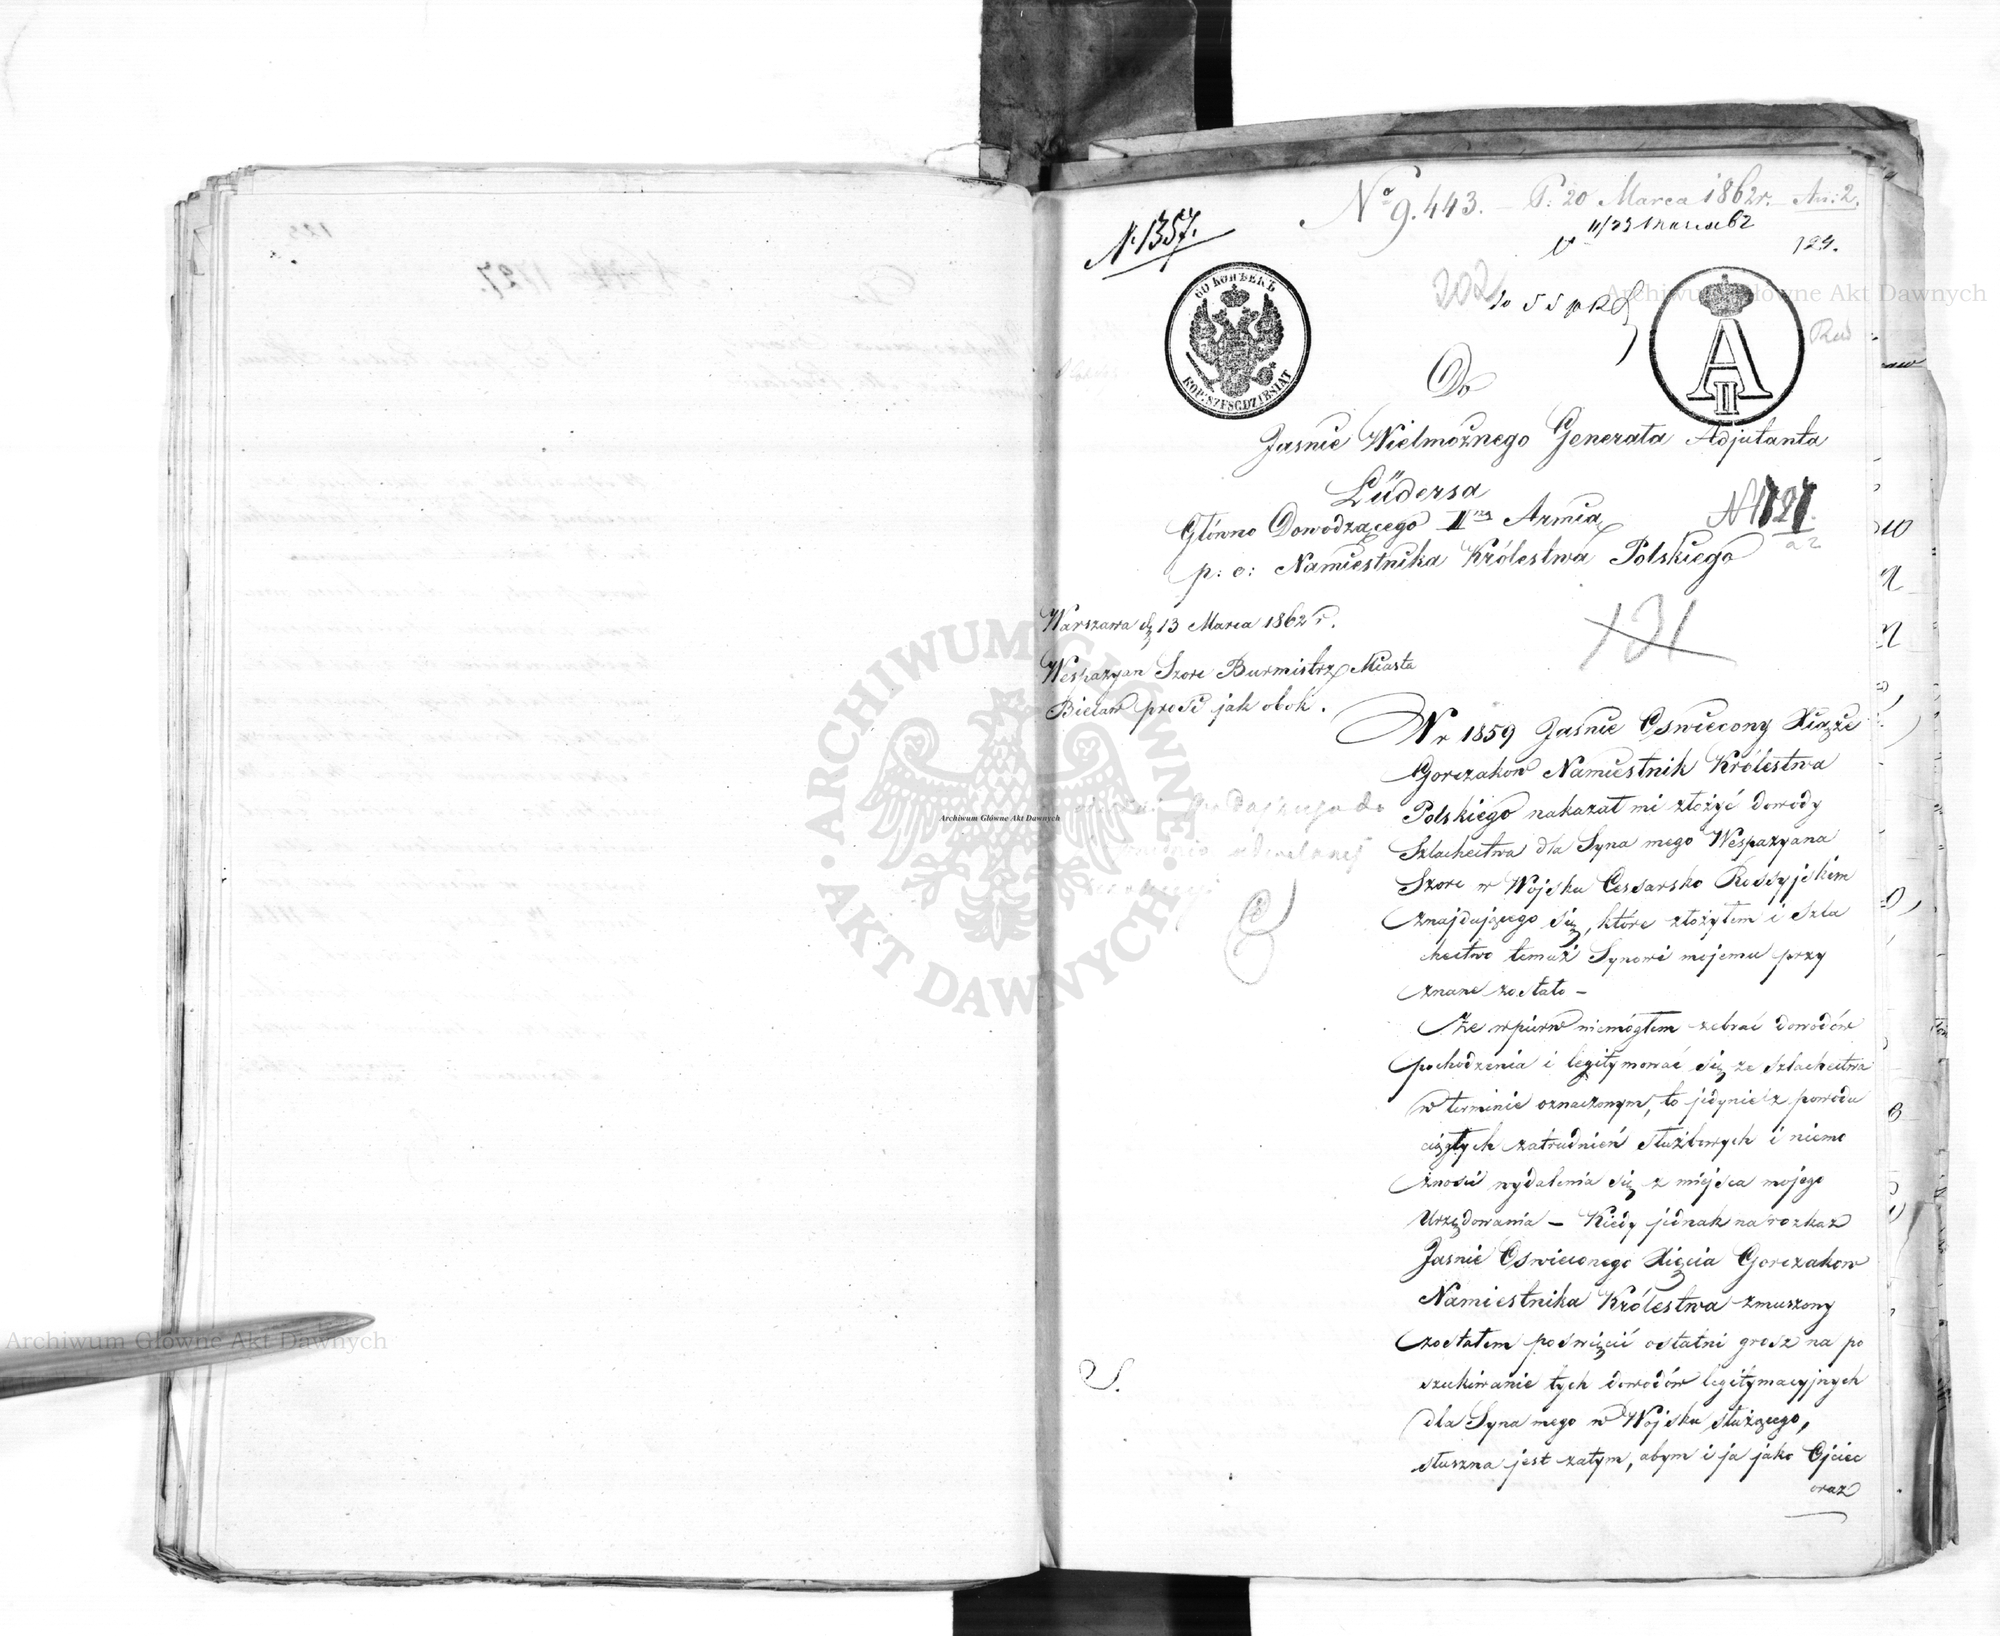 No 9.443. – P: 20 Marca 1862 r. – An: 2.
N. 1357.
124.
202
60 КОПѢЕКЪ
KOP: SZEŚĆDZIESIĄT
A II
Do
Jaśnie Wielmożnego Generała Adjutanta
Lüdersa
Główno Dowodzącego IIgą Armią
p: o: Namiestnika Królestwa Polskiego
N 1727.
a 2
121
Warszawa d. 13 Marca 1862 r.
Wespazyan Szorc Burmistrz Miasta
Bielaw prosi jak obok.
W r 1859 Jaśnie Oswiecony Xiąże
Gorczakow Namiestnik Królestwa
Polskiego nakazał mi złożyć dowody
Szlachectwa dla Syna mego Wespazyana
Szorc w Wojsku Cessarsko Rossyjskiem
znajdującego się, które złożyłem i szla
chectwo temuż Synowi mojemu przy
znane zostało –
Że wpierw niemógłem zebrać dowodów
pochodzenia i legitymować się ze szlachectwa
w terminie oznaczonym, to jedynie z powodu
ciągłych zatrudnień służbowych i niemo
żności wydalenia się z miejsca mojego
Urzędowania – Kiedy jednak na rozkaz
Jaśnie Oswieconego Xięcia Gorczakow
Namiestnika Królestwa zmuszony
zostałem poświęcić ostatni grosz na po
szukiwanie tych dowodów legitymacyjnych
dla Syna mego w Wojsku służącego,
słuszna jest zatym, abym i ja jako Ojciec
oraz
S.
ARCHIWUM GŁÓWNE AKT DAWNYCH
Archiwum Główne Akt Dawnych
Archiwum Główne Akt Dawnych
Archiwum Główne Akt Dawnych